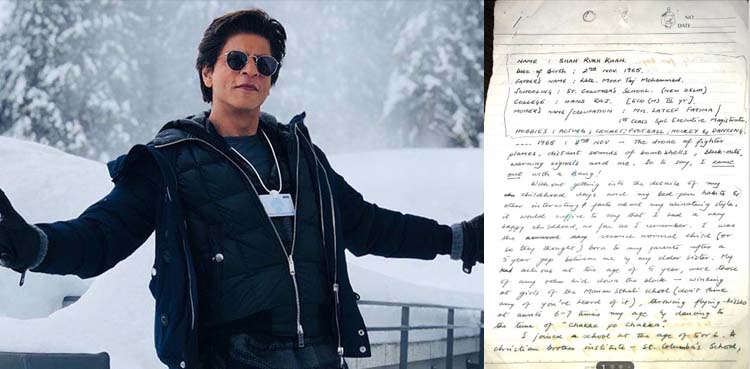 NO
DATE
NAME : SHAH RUKH KHAN.
Date of Birth : 2ND NOV. 1965.
FATHER'S NAME : Late. Meer Taj Mohammed.
SCHOOLING : ST. COLUMBA'S SCHOOL. (NEW DELHI)
COLLEGE : HANS RAJ. [ECO (H) III YR].
MOTHER'S NAME / OCCUPATION : MRS. LATEEF FATIMA /
1st CLASS Spl Executive Magistrate.
HOBBIES : ACTING ; CRICKET ; FOOTBALL ; HOCKEY & DANCING.
.... 1965 : 2ND NOV — The drone of fighter
planes, distant sounds of bombshells, black-outs,
warning signals and me. So to say, I came
out with a Bang!
Without getting into the details of my
childhood days and my bed-pan habits &
other interesting facts about my urinating style,
it would suffice to say that I had a very
happy childhood, as far as I remember. I
was the second normal child (or
so they thought) born to my parents after a
5 year gap between me & my older sister. My
actions at the age of 5 year, were those
of any other kid down the block — winking
at girls of the School (don't think
any of you've heard of it), throwing flying-kisses
at aunts 6-7 times my age & dancing to
the tune of "Chakke pe chakka.
I joined a school at the age of 5. A
christian brother institute — St. Columba's School,